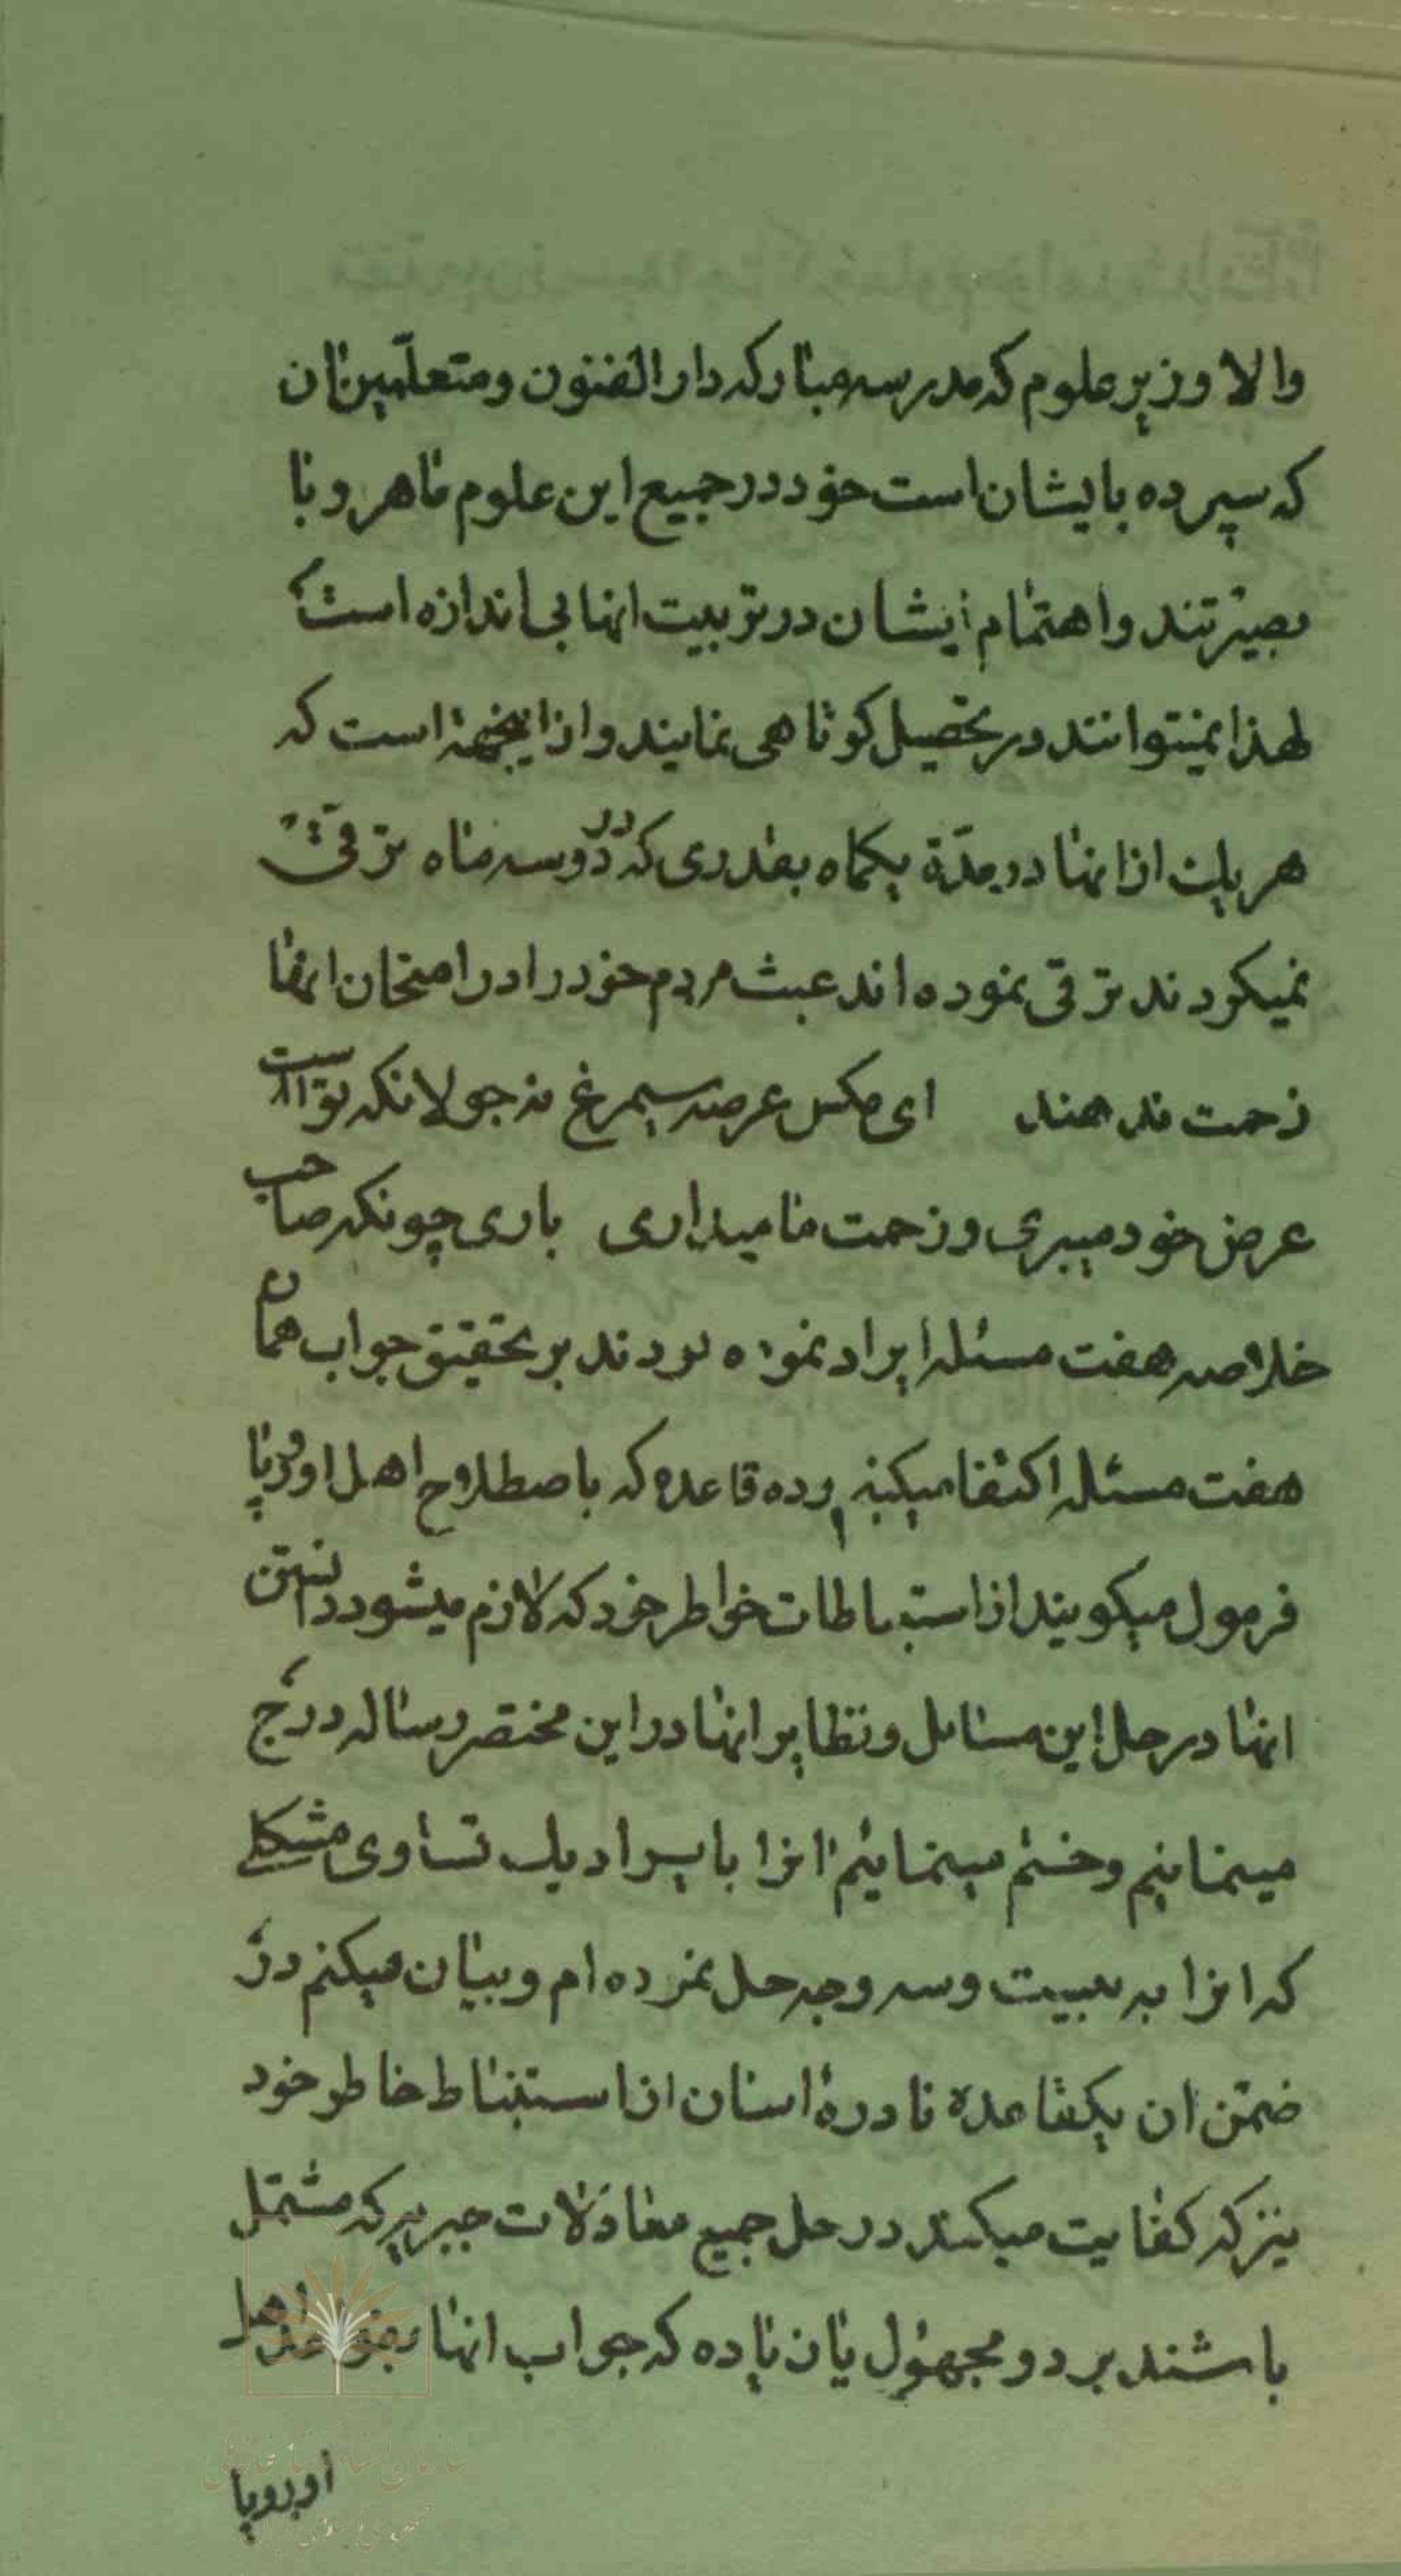 والا وزیر علوم که مدرسه مبارکه دار الفنون و متعلّمین ان
که سپرده بایشان است خود در جمیع این علوم ماهر و با
بصیرتند و اهتمام ایشان در تربیت انها بی اندازه است
لهذا نمیتوانند در تحصیل کوتاهی نمایند و از اینجهة است که
هر یک از انها در مدّة یکماه بقدری که در دو سه ماه ترقی
نمیکردند ترقی نموده اند عبث مردم خود را در امتحان انها
زحمت ندهند ای مکس عرصه سیمرغ نه جولانکه تو است
عرض خود میبری و زحمت ما میداری باری چونکه صاحب
خلاصه هفت مسئله ایراد نموده بودند بر تحقیق جواب همان
هفت مسئله اکتفا میکنیم و ده قاعده که باصطلاح اهل اوروپا
فرمول میکویند از استنباطات خواطر خود که لازم میشود دانستن
انها در حل این مسایل و نظایر انها در این مختصر رساله درج
مینمایم و ختم مینمایم انرا بایراد یک تساوی مشکلی
که انرا به بیست و سه وجه حل نموده ام و بیان میکنم در
ضمن ان یکقاعدة نادرۀ اسان از استنباط خاطر خود
نیز که کفایت میکند در حل جمیع معادلات جبریه که مشتمل
باشند بر دو مجهول یا زیاده که جواب انها بقواعد اهل
اوروپا